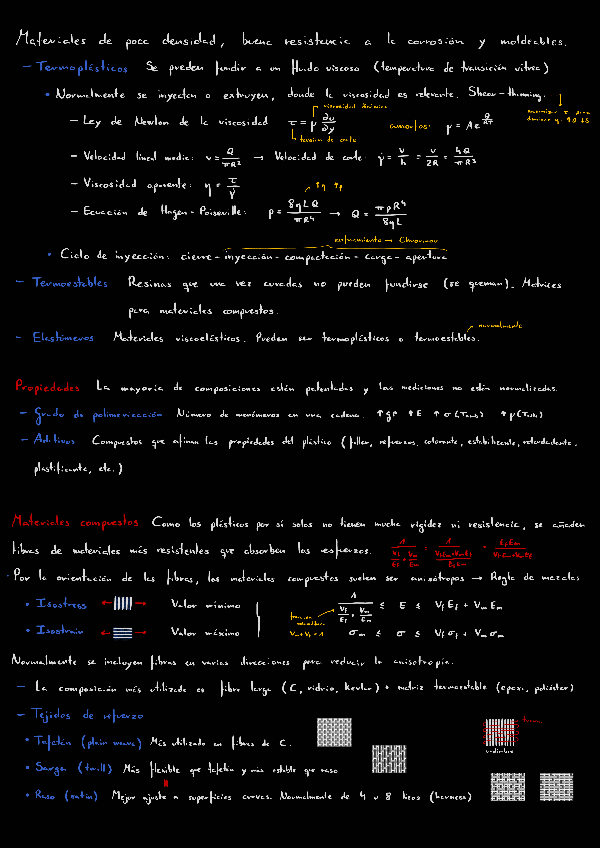 Materiales de poca densidad, buena resistencia a la corrosión y moldeables.
– Termoplásticos Se pueden fundir a un fluido viscoso (temperatura de transición vítrea)
• Normalmente se inyectan o extruyen, donde la viscosidad es relevante. Shear-thinning.
viscosidad dinámica
– Ley de Newton de la viscosidad τ = μ ∂u/∂y
tensión de corte
– Velocidad lineal media: v = Q/πR² → Velocidad de corte: γ̇ = v/h = v/2R = 4Q/πR³
– Viscosidad aparente: η = τ/γ̇
↑η ↑p
– Ecuación de Hagen-Poiseuille: p = 8ηLQ/πR⁴ → Q = πpR⁴/8ηL
enfriamiento →
• Ciclo de inyección: cierre - inyección - compactación - carga - apertura
– Termoestables Resinas que una vez curadas no pueden fundirse (se queman). Matrices
para materiales compuestos.
normalmente
– Elastómeros Materiales viscoelásticos. Pueden ser termoplásticos o termoestables.
Propiedades La mayoría de composiciones están patentadas y las mediciones no están normalizadas.
– Grado de polimerización Número de monómeros en una cadena. ↑gp ↑E
– Aditivos Compuestos que afinan las propiedades del plástico (filler, refuerzos, colorante, estabilizante, retardadante,
plastificante, etc.)
Materiales compuestos Como los plásticos por sí solos no tienen mucha rigidez ni resistencia, se añaden
fibras de materiales más resistentes que absorban los esfuerzos.
Por la orientación de las fibras, los materiales compuestos suelen ser anisótropos → Regla de mezclas
• Isostress Valor mínimo 1/(Vf/Ef + Vm/Em) ≤ E ≤ VfEf + VmEm
Vm+Vf=1
• Isostrain Valor máximo σm ≤ σ ≤ Vfσf + Vmσm
Normalmente se incluyen fibras en varias direcciones para reducir la anisotropía.
– La composición más utilizada es fibra larga (C, vidrio, kevlar) + matriz termoestable (epoxi, poliéster)
– Tejidos de refuerzo
• Tafetán (plain weave) Más utilizado en fibras de C.
urdimbre
• Sarga (twill) Más flexible que tafetán y más estable que raso
• Raso (satin) Mejor ajuste a superficies curvas. Normalmente de 4 u 8 lizos (harness)